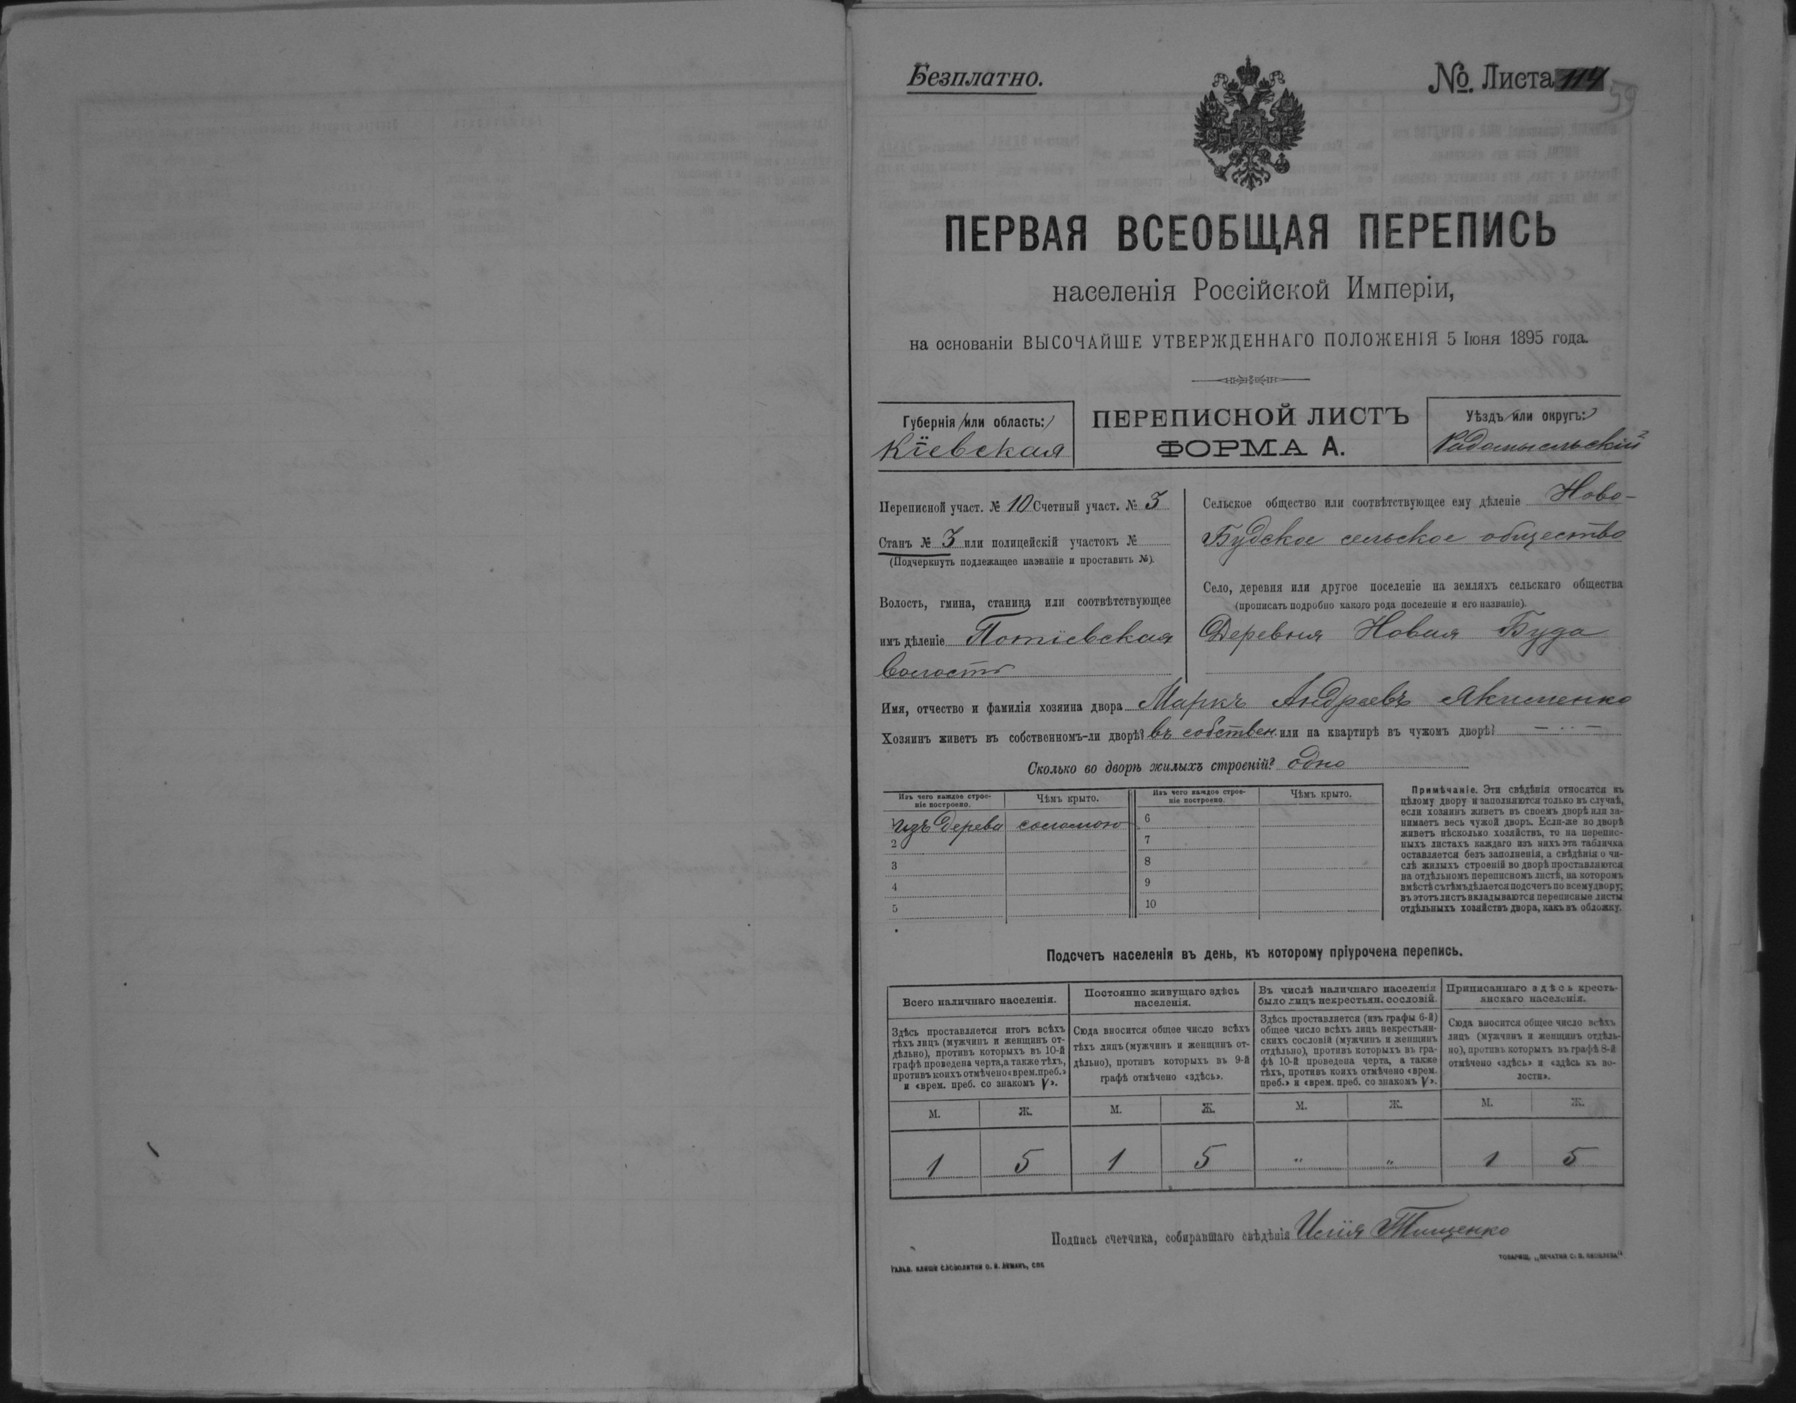 Безплатно.
№. Листа 114
59
ПЕРВАЯ ВСЕОБЩАЯ ПЕРЕПИСЬ
населенія Россійской Имперіи,
на основаніи ВЫСОЧАЙШЕ УТВЕРЖДЕННАГО ПОЛОЖЕНІЯ 5 Іюня 1895 года.
Губернія или область:
Кіевская
ПЕРЕПИСНОЙ ЛИСТЪ
ФОРМА А.
Уѣздъ или округъ:
Радомысльскій
Переписной участ. № 10 Счетный участ. № 3
Станъ № 3 или полицейскій участокъ №
(Подчеркнуть подлежащее названіе и проставить №).
Волость, гмина, станица или соотвѣтствующее
имъ дѣленіе Потіевская
волость
Сельское общество или соотвѣтствующее ему дѣленіе Ново-
Будское сельское общество
Село, деревня или другое поселеніе на земляхъ сельскаго общества
(прописать подробно какого рода поселеніе и его названіе).
Деревня Новая Буда
Имя, отчество и фамилія хозяина двора Маркъ Андреевъ Якименко
Хозяинъ живетъ въ собственномъ-ли дворѣ? въ собствен. или на квартирѣ въ чужомъ дворѣ? —
Сколько во дворѣ жилыхъ строеній? одно
Изъ чего каждое строе-
ніе построено.
Чѣмъ крыто.
Изъ чего каждое строе-
ніе построено.
Чѣмъ крыто.
изъ дерева соломою
6
2
7
3
8
4
9
5
10
Примѣчаніе. Эти свѣдѣнія относятся къ
цѣлому двору и заполняются только въ случаѣ,
если хозяинъ живетъ въ своемъ дворѣ или за-
нимаетъ весь чужой дворъ. Если-же во дворѣ
живетъ нѣсколько хозяйствъ, то на перепис-
ныхъ листахъ каждаго изъ нихъ эта табличка
оставляется безъ заполненія, а свѣдѣнія о чи-
слѣ жилыхъ строеній во дворѣ проставляются
на отдѣльномъ переписномъ листѣ, на которомъ
вмѣстѣ съ тѣмъ дѣлается подсчетъ по всему двору;
въ этотъ листъ вкладываются переписные листы
отдѣльныхъ хозяйствъ двора, какъ въ обложку.
Подсчетъ населенія въ день, къ которому пріурочена перепись.
Всего наличнаго населенія.
Постоянно живущаго здѣсь
населенія.
Въ числѣ наличнаго населенія
было лицъ некрестьян. сословій.
Приписаннаго здѣсь кресть-
янскаго населенія.
Здѣсь проставляется итогъ всѣхъ
тѣхъ лицъ (мужчинъ и женщинъ от-
дѣльно), противъ которыхъ въ 10-й
графѣ проведена черта, а также тѣхъ,
противъ коихъ отмѣчено «врем. преб.»
и «врем. преб. со знакомъ V».
Сюда вносится общее число всѣхъ
тѣхъ лицъ (мужчинъ и женщинъ от-
дѣльно), противъ которыхъ въ 9-й
графѣ отмѣчено «здѣсь».
Здѣсь проставляется (изъ графы 6-й)
общее число всѣхъ лицъ некрестьян-
скихъ сословій (мужчинъ и женщинъ
отдѣльно), противъ которыхъ въ гра-
фѣ 10-й проведена черта, а также
тѣхъ, противъ коихъ отмѣчено «врем.
преб.» и «врем. преб. со знакомъ V».
Сюда вносится общее число всѣхъ
лицъ (мужчинъ и женщинъ отдѣль-
но), противъ которыхъ въ графѣ 8-й
отмѣчено «здѣсь» и «здѣсь къ во-
лости».
М. Ж. М. Ж. М. Ж. М. Ж.
1 5 1 5 " " 1 5
Подпись счетчика, собиравшаго свѣдѣнія Илія Тищенко
ГАЛЬВ. КЛИШЕ СЛОВОЛИТНИ О. И. ЛЕМАНЪ, СПБ.
ТОВАРИЩ. „ПЕЧАТНИ С. П. ЯКОВЛЕВА"